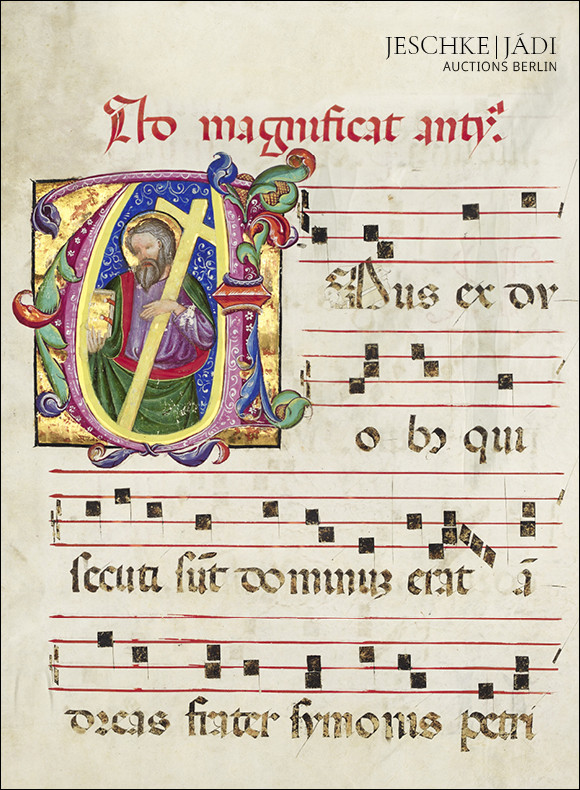 JESCHKE|JÁDI
AUCTIONS BERLIN
Ad magnificat anty.
Unus ex du
o bȝ qui
secuti sūt dominuȝ erat ā
dreas frater symonis petri